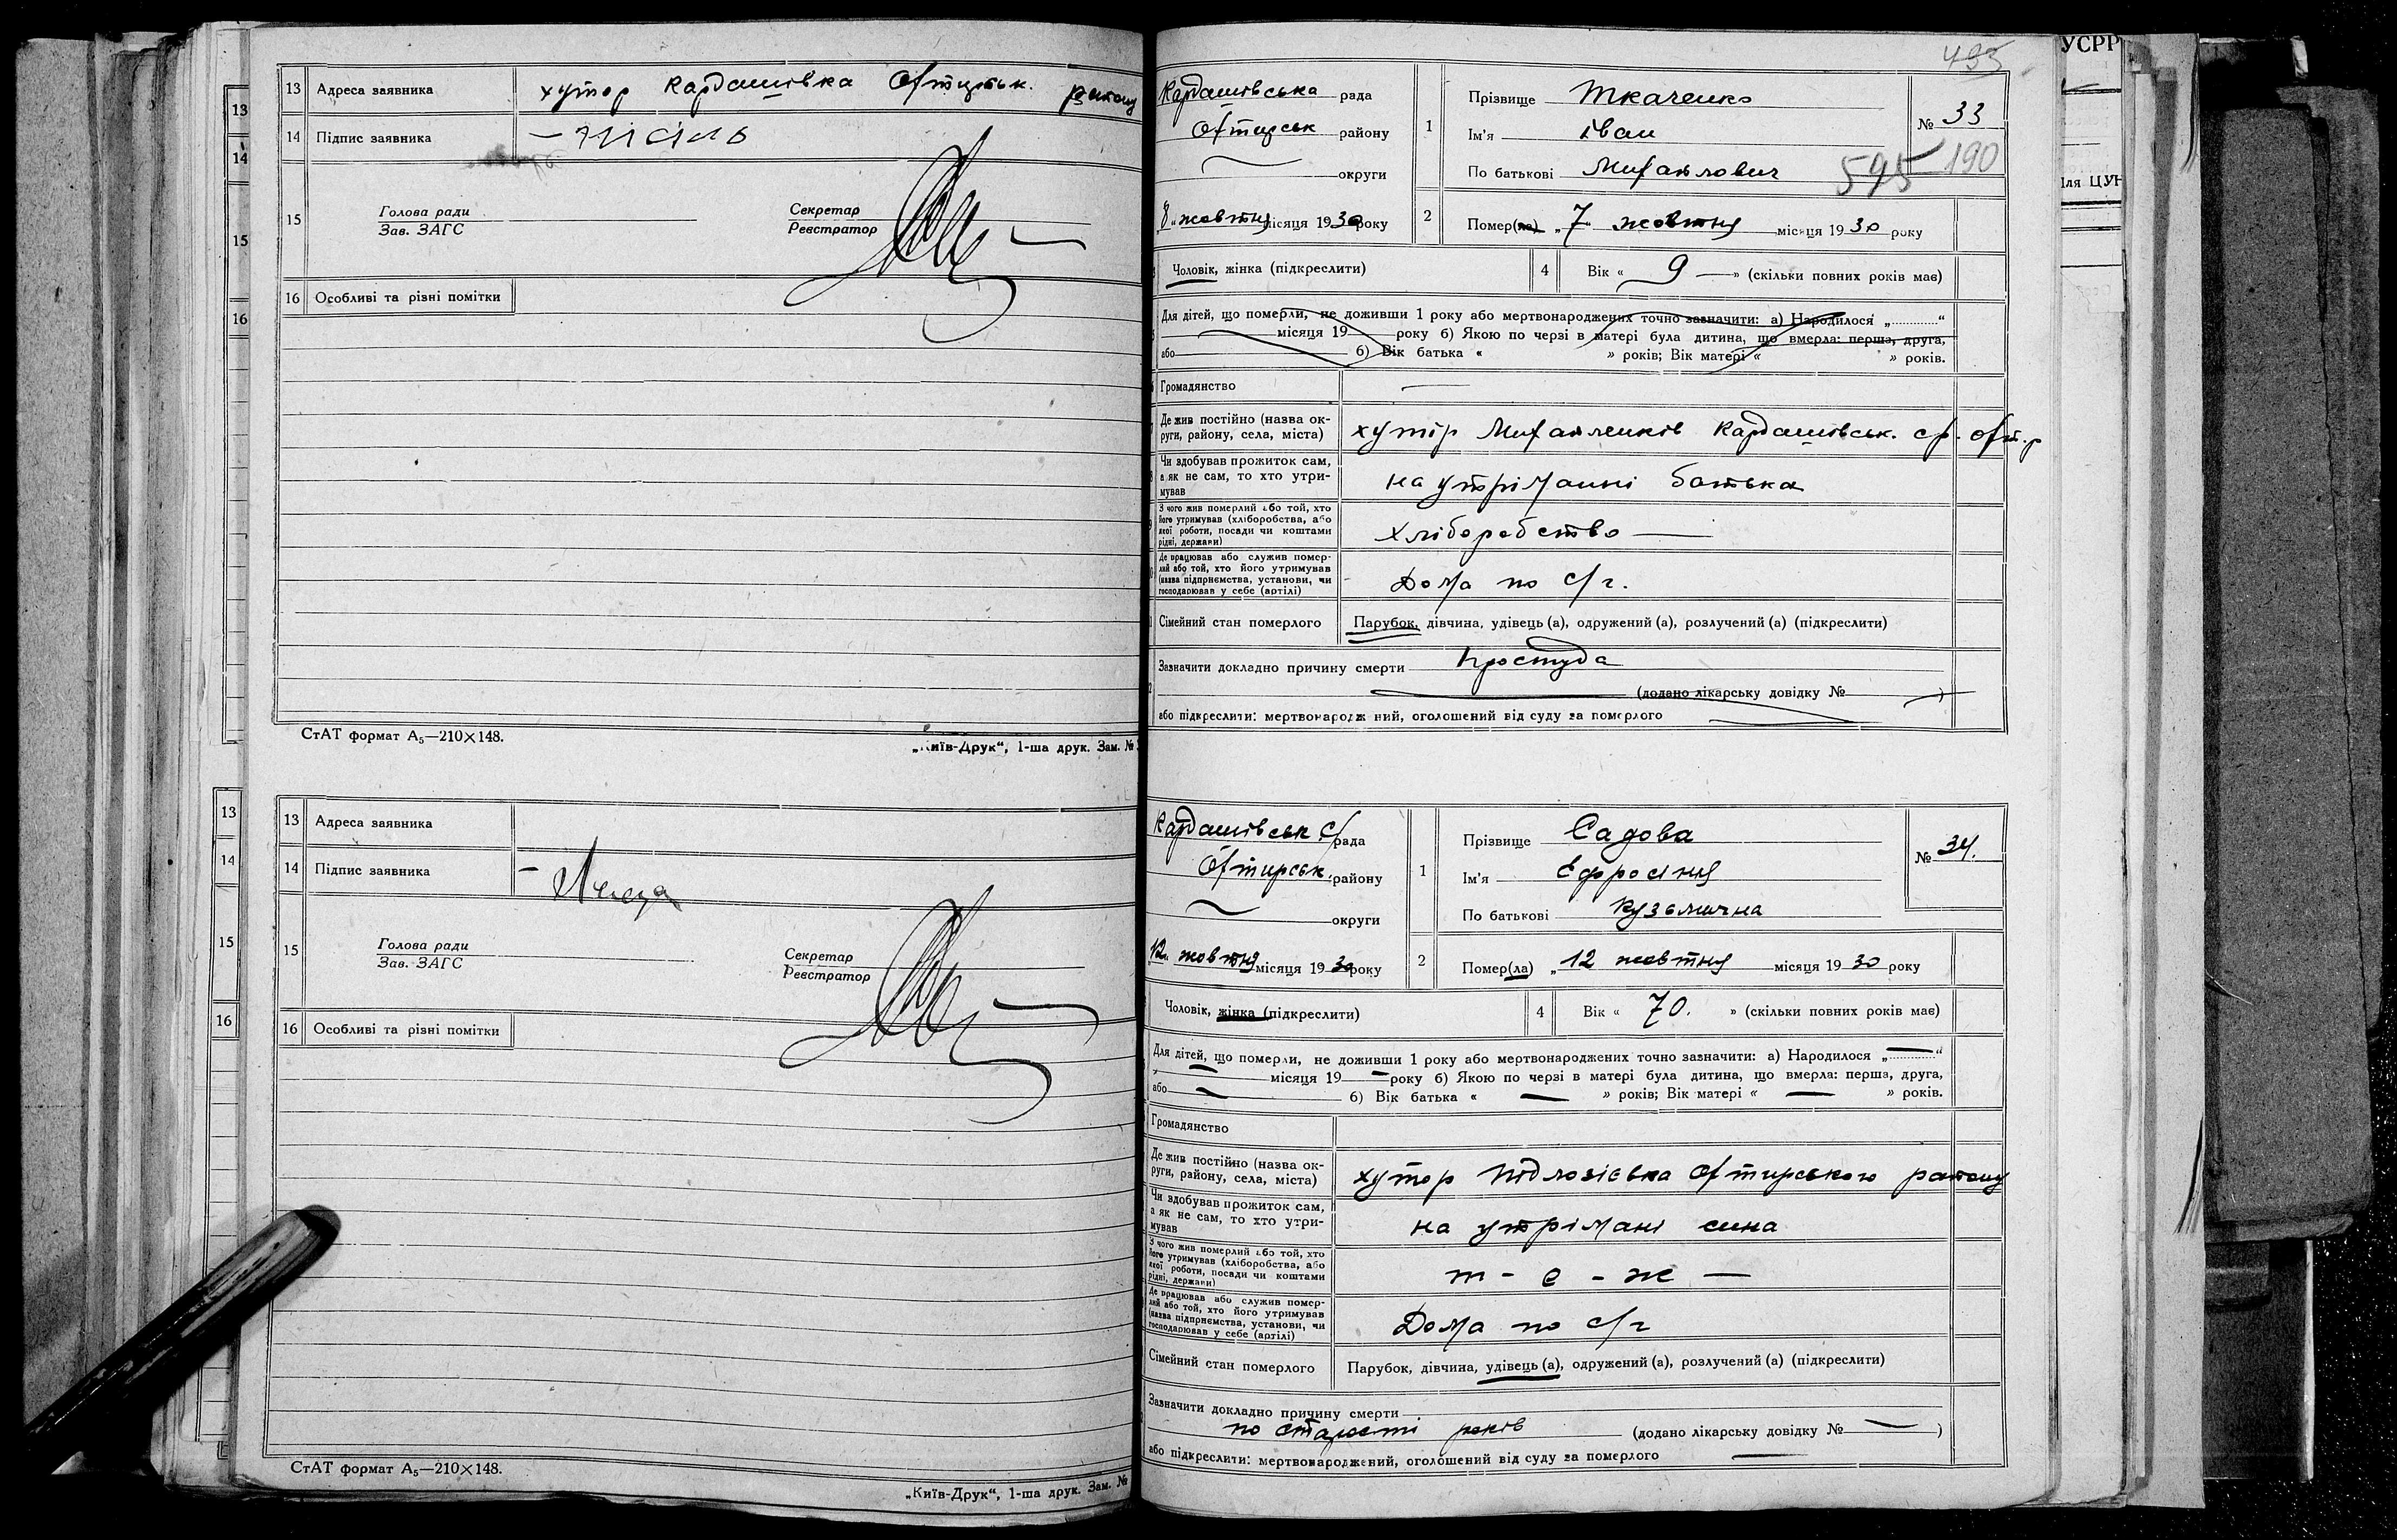 13 Адреса заявника хутор Кардашівка Охтирськ. району
14 Підпис заявника
15 Голова ради
Зав. ЗАГС
Секретар
Реєстратор
16 Особливі та різні помітки
СтАТ формат А₅—210×148.
„Київ-Друк“, 1-ша друк. Зам. №
13 Адреса заявника
14 Підпис заявника
15 Голова ради
Зав. ЗАГС
Секретар
Реєстратор
16 Особливі та різні помітки
СтАТ формат А₅—210×148.
„Київ-Друк“, 1-ша друк. Зам. №
13
14
15
16
13
14
15
16
493
Кардашівська рада
Охтирськ району
округи
8 жовтня місяця 1930 року
1 Прізвище Ткаченко
Ім'я Іван
По батькові Михайлович
№ 33
595 190
2 Помер(ла) „7 жовтня місяця 1930 року
Чоловік, жінка (підкреслити)
4 Вік « 9 » (скільки повних років мав)
Для дітей, що померли, не доживши 1 року або мертвонароджених точно зазначити: а) Народилося „ “
місяця 19 року б) Якою по черзі в матері була дитина, що вмерла: перша, друга,
або б) Вік батька « » років; Вік матері « » років.
Громадянство
Де жив постійно (назва ок-
руги, району, села, міста) хутір Михайленків Кардашівськ. с/р. Охт. р
Чи здобував прожиток сам,
а як не сам, то хто утри-
мував на утріманні батька
З чого жив померлий або той, хто
його утримував (хліборобства, або
якої роботи, посади чи коштами
рідні, держави) Хліборобство
Де працював або служив помер-
лий або той, хто його утримував
(назва підприємства, установи, чи
господарював у себе (артілі) Дома по с/г.
Сімейний стан померлого Парубок, дівчина, удівець (а), одружений (а), розлучений (а) (підкреслити)
Зазначити докладно причину смерти простуда
(додано лікарську довідку № )
або підкреслити: мертвонароджений, оголошений від суду за померлого
Кардашівськ с/рада
Охтирськ. району
округи
12 жовтня місяця 1930 року
1 Прізвище Садова
Ім'я Єфросіния
По батькові Кузьмична
№ 34.
2 Помер(ла) „12 жовтня місяця 1930 року
Чоловік, жінка (підкреслити)
4 Вік « 70. » (скільки повних років мав)
Для дітей, що померли, не доживши 1 року або мертвонароджених точно зазначити: а) Народилося „ “
місяця 19 року б) Якою по черзі в матері була дитина, що вмерла: перша, друга,
або б) Вік батька « » років; Вік матері « » років.
Громадянство
Де жив постійно (назва ок-
руги, району, села, міста) хутор Підлозіївка Охтирського району
Чи здобував прожиток сам,
а як не сам, то хто утри-
мував на утрімані сина
З чого жив померлий або той, хто
його утримував (хліборобства, або
якої роботи, посади чи коштами
рідні, держави) т - е - ж
Де працював або служив помер-
лий або той, хто його утримував
(назва підприємства, установи, чи
господарював у себе (артілі) Дома по с/г
Сімейний стан померлого Парубок, дівчина, удівець (а), одружений (а), розлучений (а) (підкреслити)
Зазначити докладно причину смерти
по старости років (додано лікарську довідку № )
або підкреслити: мертвонароджений, оголошений від суду за померлого
УСРР
для ЦУН